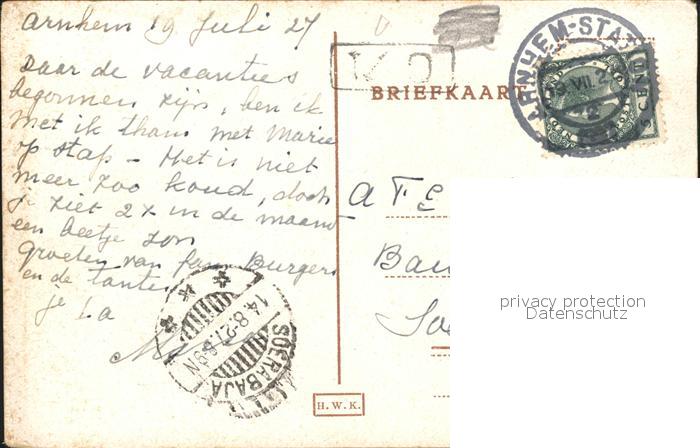 Arnhem 19 Juli 27
Daar de vacanties
begonnen zijn, ben ik
met ik thans met Marie
op stap – Het is niet
meer zoo koud, doch
je ziet 2x in de maand
een beetje zon
Groeten van fam. Burgers
en de tantes
je La
V.O
BRIEFKAART
ARNHEM-STA
19.VII. 2
5 CENT
ATE
Bau
Soe
SOERABAJA
14.8.27.
H.W.K.
privacy protection
Datenschutz